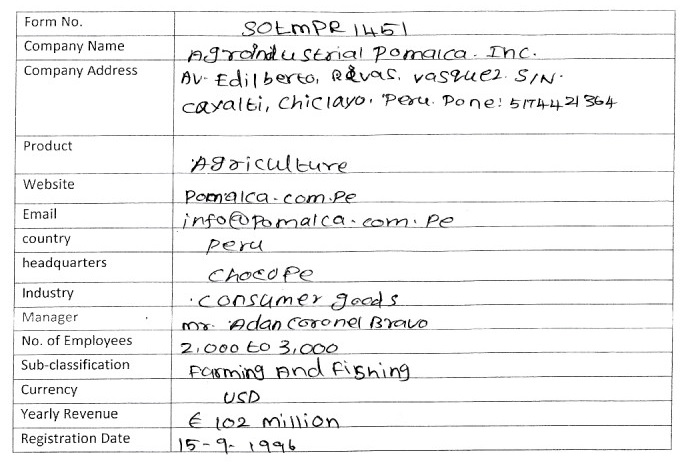 Form No. SOLMPR 1451
Company Name Agroindustrial Pomalca. Inc.
Company Address Av. Edilberto, Rivas. vasquez. S/N.
cayalti, Chiclayo. Peru. Pone: 5174421364
Product Agriculture
Website Pomalca.com.Pe
Email info@Pomalca.com.Pe
country Peru
headquarters ChocoPe
Industry consumer goods
Manager mr. Adan Coronel Bravo
No. of Employees 2,000 to 3,000
Sub-classification Farming And Fishing
Currency USD
Yearly Revenue € 102 million
Registration Date 15-9-1996